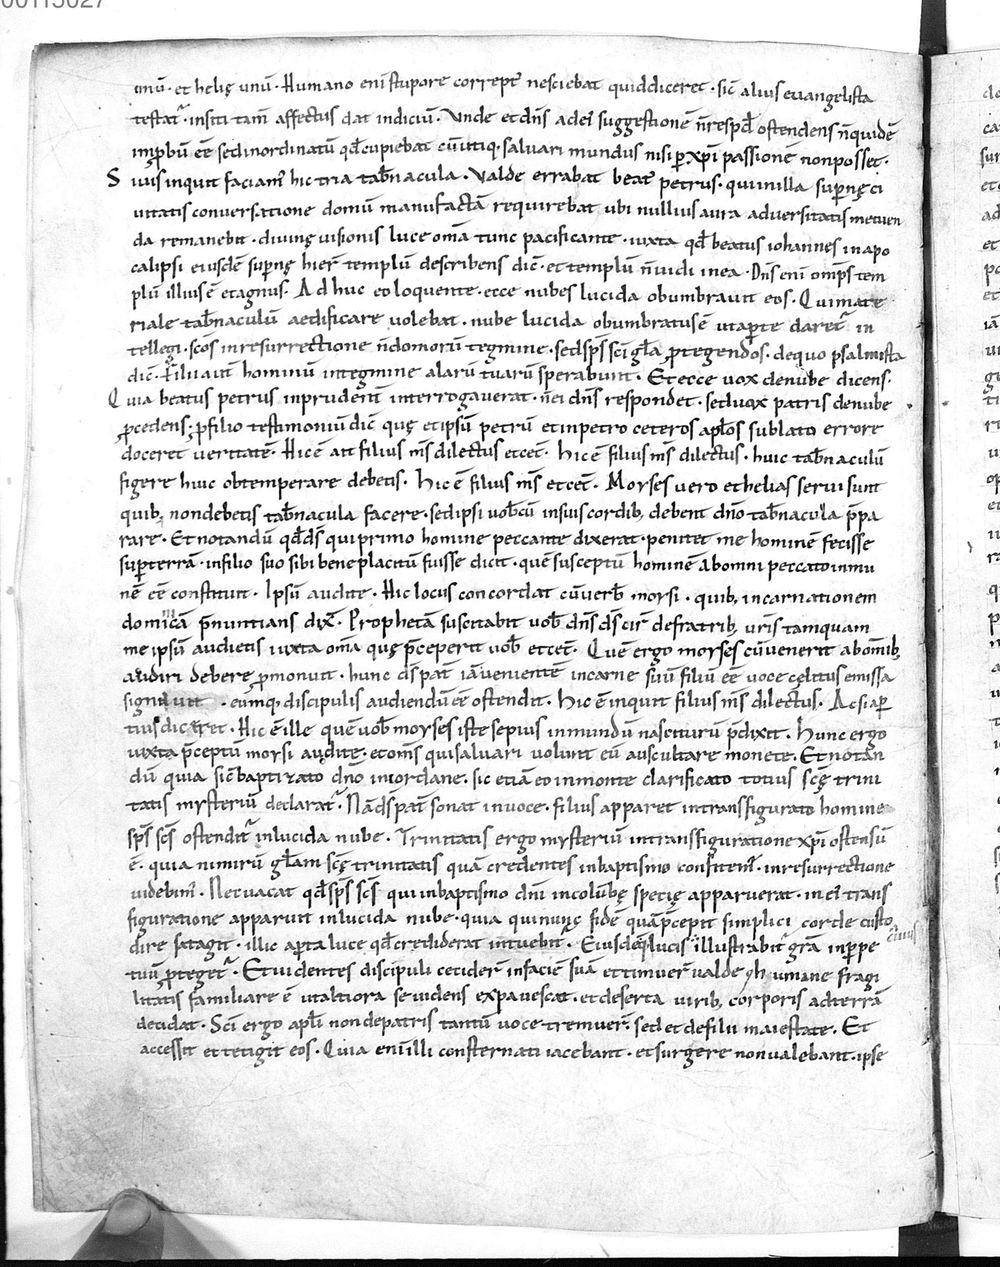 00115027
unū · et helię unū · Humano enī stupore corrept᾽ nesciebat quid diceret · sic̄ alius euangelista
testat᾽ · insiti tam̄ affectus dat indiciū · Vnde et dn̄s ad ei᾽ suggestionē n̄ respd̄ ostendens n̄ quidē
imp̱bū eē sed inordinatū qd̄ cupiebat cū utiq · saluari mundus nisi p̱ xp̄i passionē non posset ·
S iuis inquit faciam᾽ hic tria tab̄nacula · Valde errabat beat᾽ petrus · qui in illa sup̱nę ci
uitatis conuersatione domū manufactā requirebat ubi nullius aura aduersitatis metuen
da remanebit · diuinę uisionis luce om̄a tunc pacificante · iuxta qd̄ beatus iohannes in apo
calipsi eiusdē sup̱nę hier̄ templū describens dic̄ · et templū n̄ uidi in ea · Dn̄s eni om̄ps tem
plū illius ē et agnus · Adhuc eo loquente · ecce nubes lucida obumbrauit eos · Qui mate
riale tab̄naculū aedificare uolebat · nube lucida obumbratus ē ut ap̱te daret᾽ in
tellegi · sc̄os in resurrectione n̄ domorū tegmine · sed sp̄s sc̄i gl̄a p̱tegendos · de quo psalmista
dic̄ · Filii aut̄ hominū in tegmine alarū tuarū sperabunt · Et ecce uox de nube dicens ·
Q uia beatus petrus inprudent̄ interrogauerat · n̄ ei dn̄s respondet · sed uox patris de nube
p̱cedens · p̱ filio testimoniū dic̄ quę et ipsū petrū et in petro ceteros apl̄os sublato errore
doceret ueritatē · Hic ē ait filius m̄s dilectus et cet̄ · Hic ē filius m̄s dilectus · huic tab̄naculū
figere huic obtemperare debetis · Hic ē filius m̄s et cet̄ · Moyses uero et helias serui sunt
quib; non debetis tab̄nacula facere · sed ipsi uob̄cū in suis cordib; debent dn̄o tab̄nacula p̄pa
rare · Et notandū qd̄ d̄s qui primo homine peccante dixerat · penitet me hominē fecisse
sup̱ terrā · in filio suo sibi bene placitū fuisse dicit · quē susceptū hominē ab omni peccato inmu
nē eē constituit · Ipsū audite · Hic locus concordat cū uerb᾽ moysi · quib; incarnationem
dominicā p̄nuntians dix̄ · Prophetā suscitabit uob̄ dn̄s d̄s de fratrib; ur̄is tamquam
me ipsū audietis iuxta om̄a quę p̄ceperit uob̄ et cet̄ · Quē ergo moyses cū uenerit ab om̄ib;
audiri debere p̱monuit · hunc d̄s pat̄ iā uenientē in carne suū filiū eē uoce cęlitus emissa
signauit · eumq; discipulis audiendū eē ostendit · Hic ē inquit filius m̄s dilectus · Ac si ap̱
tius diceret · Hic ē ille quē uob̄ moyses iste sepius in mundū nasciturū p̄dixit · Hunc ergo
iuxta p̄ceptū moysi audite · et om̄s qui saluari uolunt eū auscultare monete · Et notan
dū quia sic̄ baptizato dn̄o in iordane · sic etiā eo in monte clarificato totius scę̄ trini
tatis mysteriū declarat᾽ · Nā d̄s pat̄ sonat in uoce · filius apparet in transfigurato homine
sp̄s sc̄s ostendit᾽ in lucida nube · Trinitatis ergo mysteriū in transfiguratione xp̄i ostensū
ē · quia nimirū gl̄am scę̄ trinitatis quā credentes in baptismo confitem᾽ · in resurrectione
uidebim᾽ · Nec uacat qd̄ sp̄s sc̄s qui in baptismo dn̄i in colūbę specię apparuerat · in ei᾽ trans
figuratione apparuit in lucida nube · quia qui nunc fidē quā p̱cepit simplici corde custo
dire satagit · illic ap̱ta luce qd̄ crediderat intuebit᾽ · Eiusdēq; lucis illustrabit᾽ gr̄a in p̱pe
tuū p̱teget᾽ · Et uidentes discipuli cecider̄ in faciē suā et timuer̄ ualde qh umane fragi
litatis familiare ē ut altiora se uidens expauescat · et deserta uirib; corporis ad terrā
decidat · Sc̄i ergo apl̄i non de patris tantū uoce tremuer̄ · sed et de filii maiestate · Et
accessit et tetigit eos · Quia enī illi consternati iacebant · et surgere non ualebant · ipse